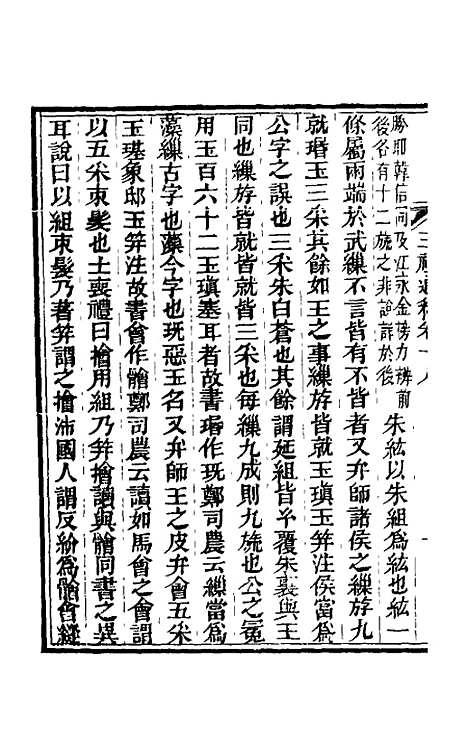 三禮通釋卷十八
勝即韓信同及江永金榜力辨前
後各有十二旒之非說詳於後
朱紘以朱組爲紘也紘一
條屬兩端於武繅不言皆有不皆者又弁師諸侯之繅斿九
就瑉玉三采其餘如王之事繅斿皆就玉瑱玉筓注侯當爲
公字之誤也三采朱白蒼也其餘謂延紐皆玄覆朱裏與王
同也繅斿皆就皆三采也每繅九成則九旒也公之冕
用玉百六十二玉瑱塞耳者故書瑉作玩鄭司農云繅當爲
藻繅古字也藻今字也玩惡玉名又弁師王之皮弁會五采
玉璂象邸玉筓注故書會作䯤鄭司農云讀如馬會之會謂
以五采束髮也士喪禮曰檜用組乃筓檜讀與䯤同書之異
耳說曰以組束髮乃著筓謂之檜沛國人謂反紒爲䯤會縫